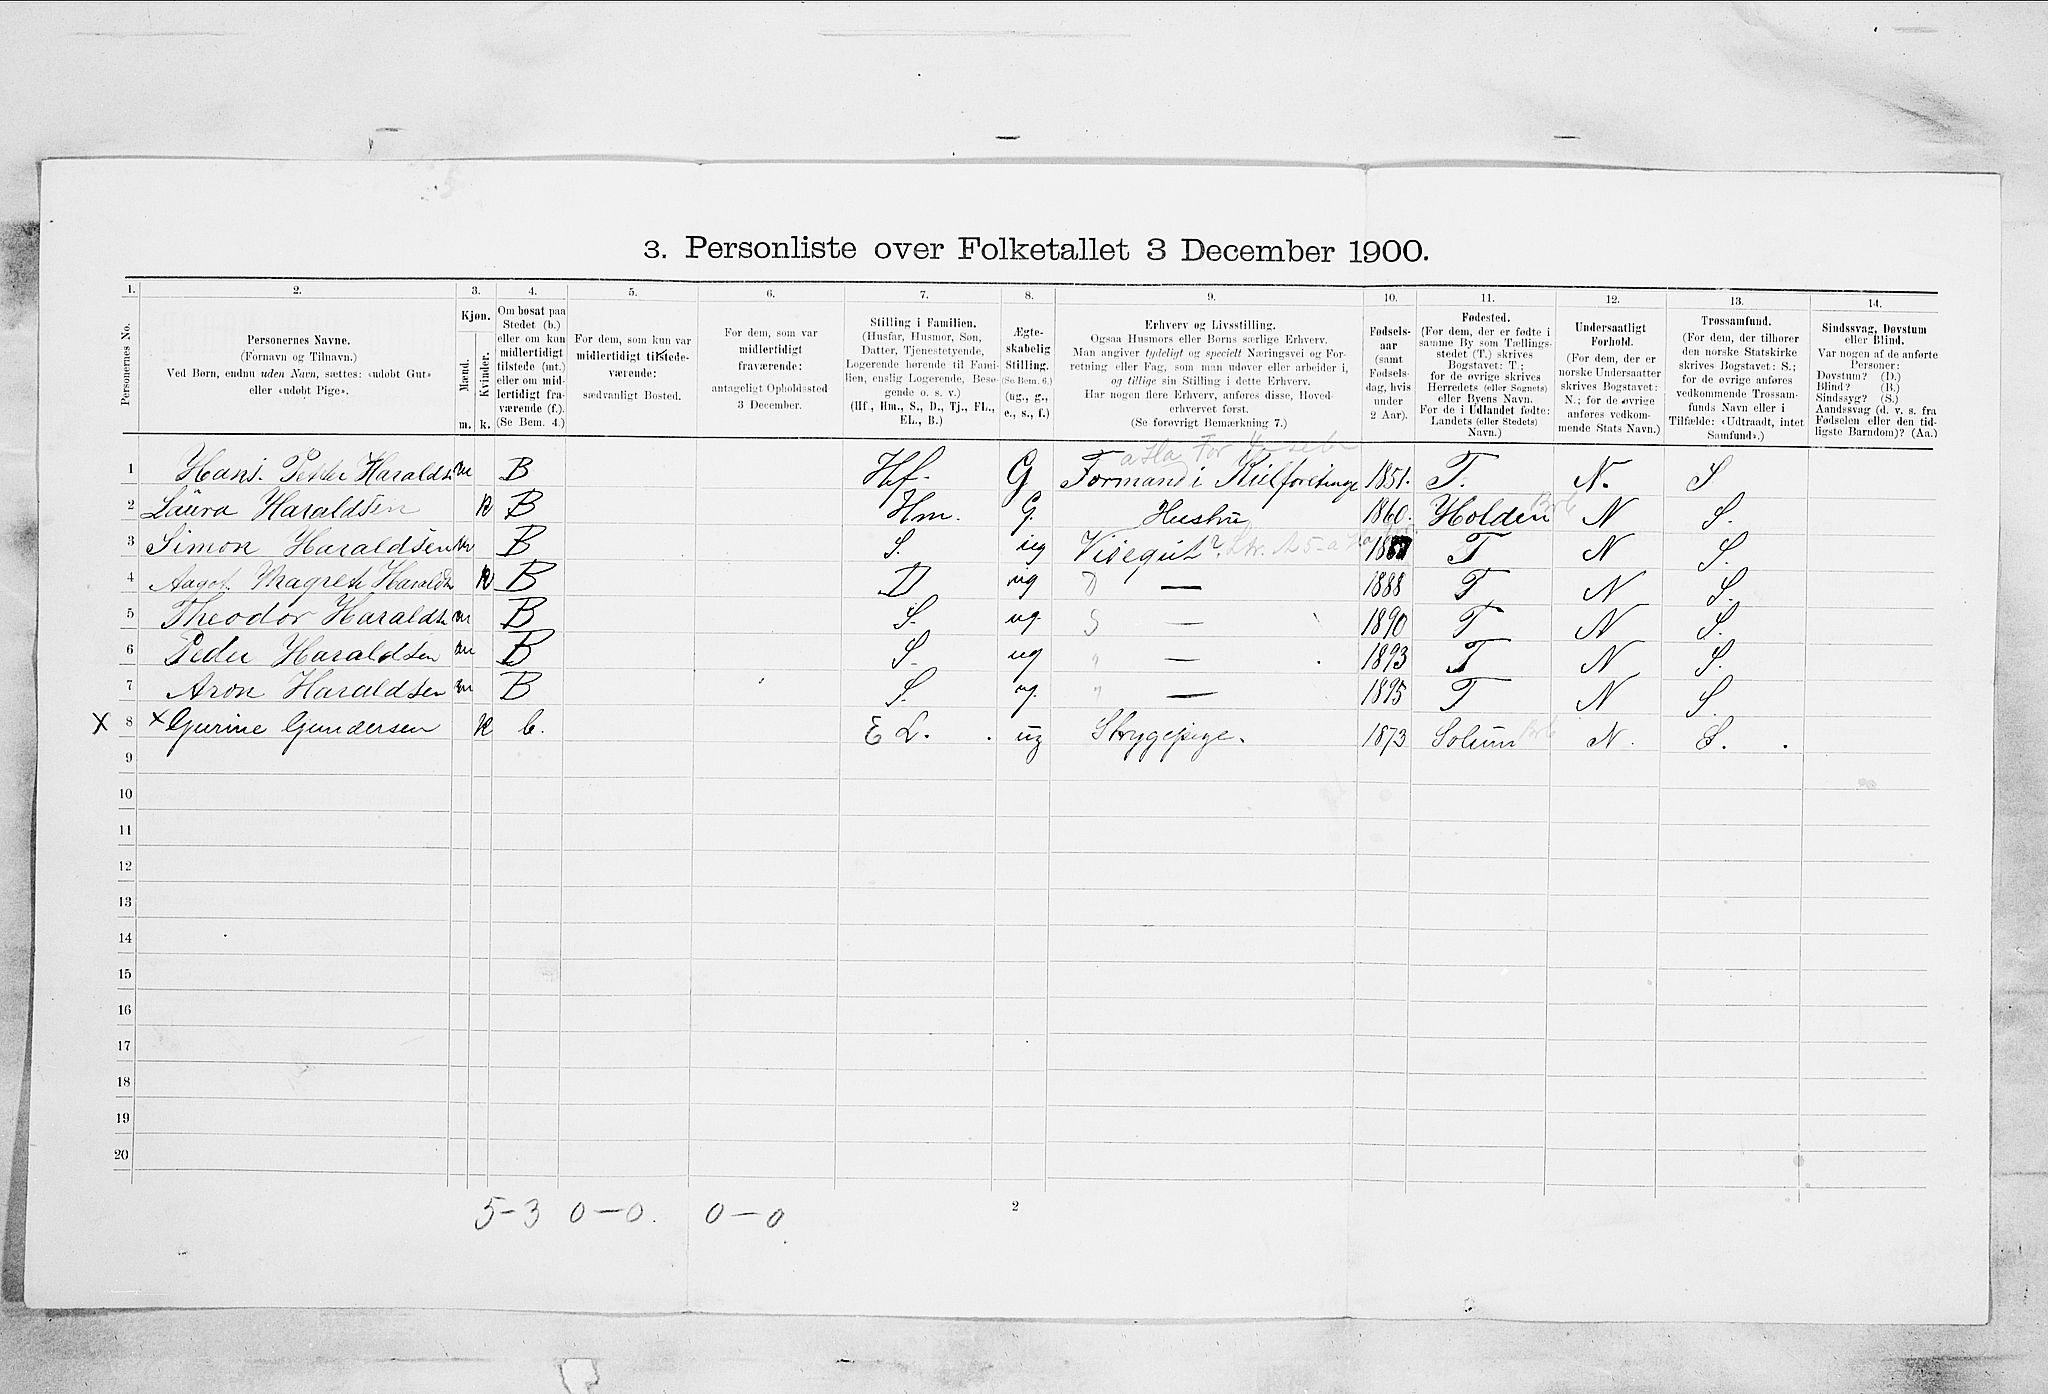 3. Personliste over Folketallet 3 December 1900.
1. 2. 3. 4. 5. 6. 7. 8. 9. 10. 11. 12. 13. 14.
Personernes No.
Personernes Navne.
(Fornavn og Tilnavn.)
Ved Børn, endnu uden Navn, sættes: «udøbt Gut»
eller «udøbt Pige».
Kjøn.
Mænd.
Kvinder.
m. k.
Om bosat paa
Stedet (b.)
eller om kun
midlertidigt
tilstede (mt.)
eller om mid-
lertidigt fra-
værende (f.).
(Se Bem. 4.)
For dem, som kun var
midlertidigt tilstede-
værende:
sædvanligt Bosted.
For dem, som var
midlertidigt
fraværende:
antageligt Opholdssted
3 December.
Stilling i Familien.
(Husfar, Husmor, Søn,
Datter, Tjenestetyende,
Logerende hørende til Fami-
lien, enslig Logerende, Besø-
gende o. s. v.)
(Hf., Hm., S., D., Tj., FL.,
EL., B.)
Ægte-
skabelig
Stilling.
(Se Bem. 6.)
(ug., g.,
e., s., f.)
Erhverv og Livsstilling.
Ogsaa Husmors eller Børns særlige Erhverv.
Man angiver tydeligt og specielt Næringsvei og For-
retning eller Fag, som man udøver eller arbeider i,
og tillige sin Stilling i dette Erhverv.
Har nogen flere Erhverv, anføres disse, Hoved-
erhvervet først.
(Se forøvrigt Bemærkning 7.)
Fødsels-
aar
(samt
Fødsels-
dag, hvis
under
2 Aar).
Fødested.
(For dem, der er fødte i
samme By som Tællings-
stedet (T.) skrives
Bogstavet: T;
for de øvrige skrives
Herredets (eller Sognets)
eller Byens Navn.
For de i Udlandet fødte:
Landets (eller Stedets)
Navn.)
Undersaatligt
Forhold.
(For dem, der er
norske Undersaatter
skrives Bogstavet:
N.; for de øvrige
anføres vedkom-
mende Stats Navn.)
Trossamfund.
(For dem, der tilhører
den norske Statskirke
skrives Bogstavet: S.;
for de øvrige anføres
vedkommende Trossam-
funds Navn eller i
Tilfælde: «Udtraadt, intet
Samfund».)
Sindssvag, Døvstum
eller Blind.
Var nogen af de anførte
Personer:
Døvstum? (D.)
Blind? (B.)
Sindssyg? (S.)
Aandssvag (d. v. s. fra
Fødselen eller den tid-
ligste Barndom)? (Aa.)
1 Hans. Peder Haralds m B Hf. G Formand i 1851. T. N. S
2 Laura Haraldsen K B Hm. G. Hustru 1860. Holden N S.
3 Simon Haraldsen m B S. ug Visegut T N S.
4 Aagot Magrete Haralds K B D ug D — 1888 T N S.
5 Theodor Haralds m B S. ug. S — 1890 T N S.
6 Peder Haraldsen m B S. ug " — 1893 T N S.
7 Aron Haraldsen m B S. ug. " — 1895 T N S.
X 8 × Gurine Gundersen K b. E L. ug Strygepige. 1873 Solum N. S.
9
10
11
12
13
14
15
16
17
18
19
20
5-3 0-0. 0-0
2